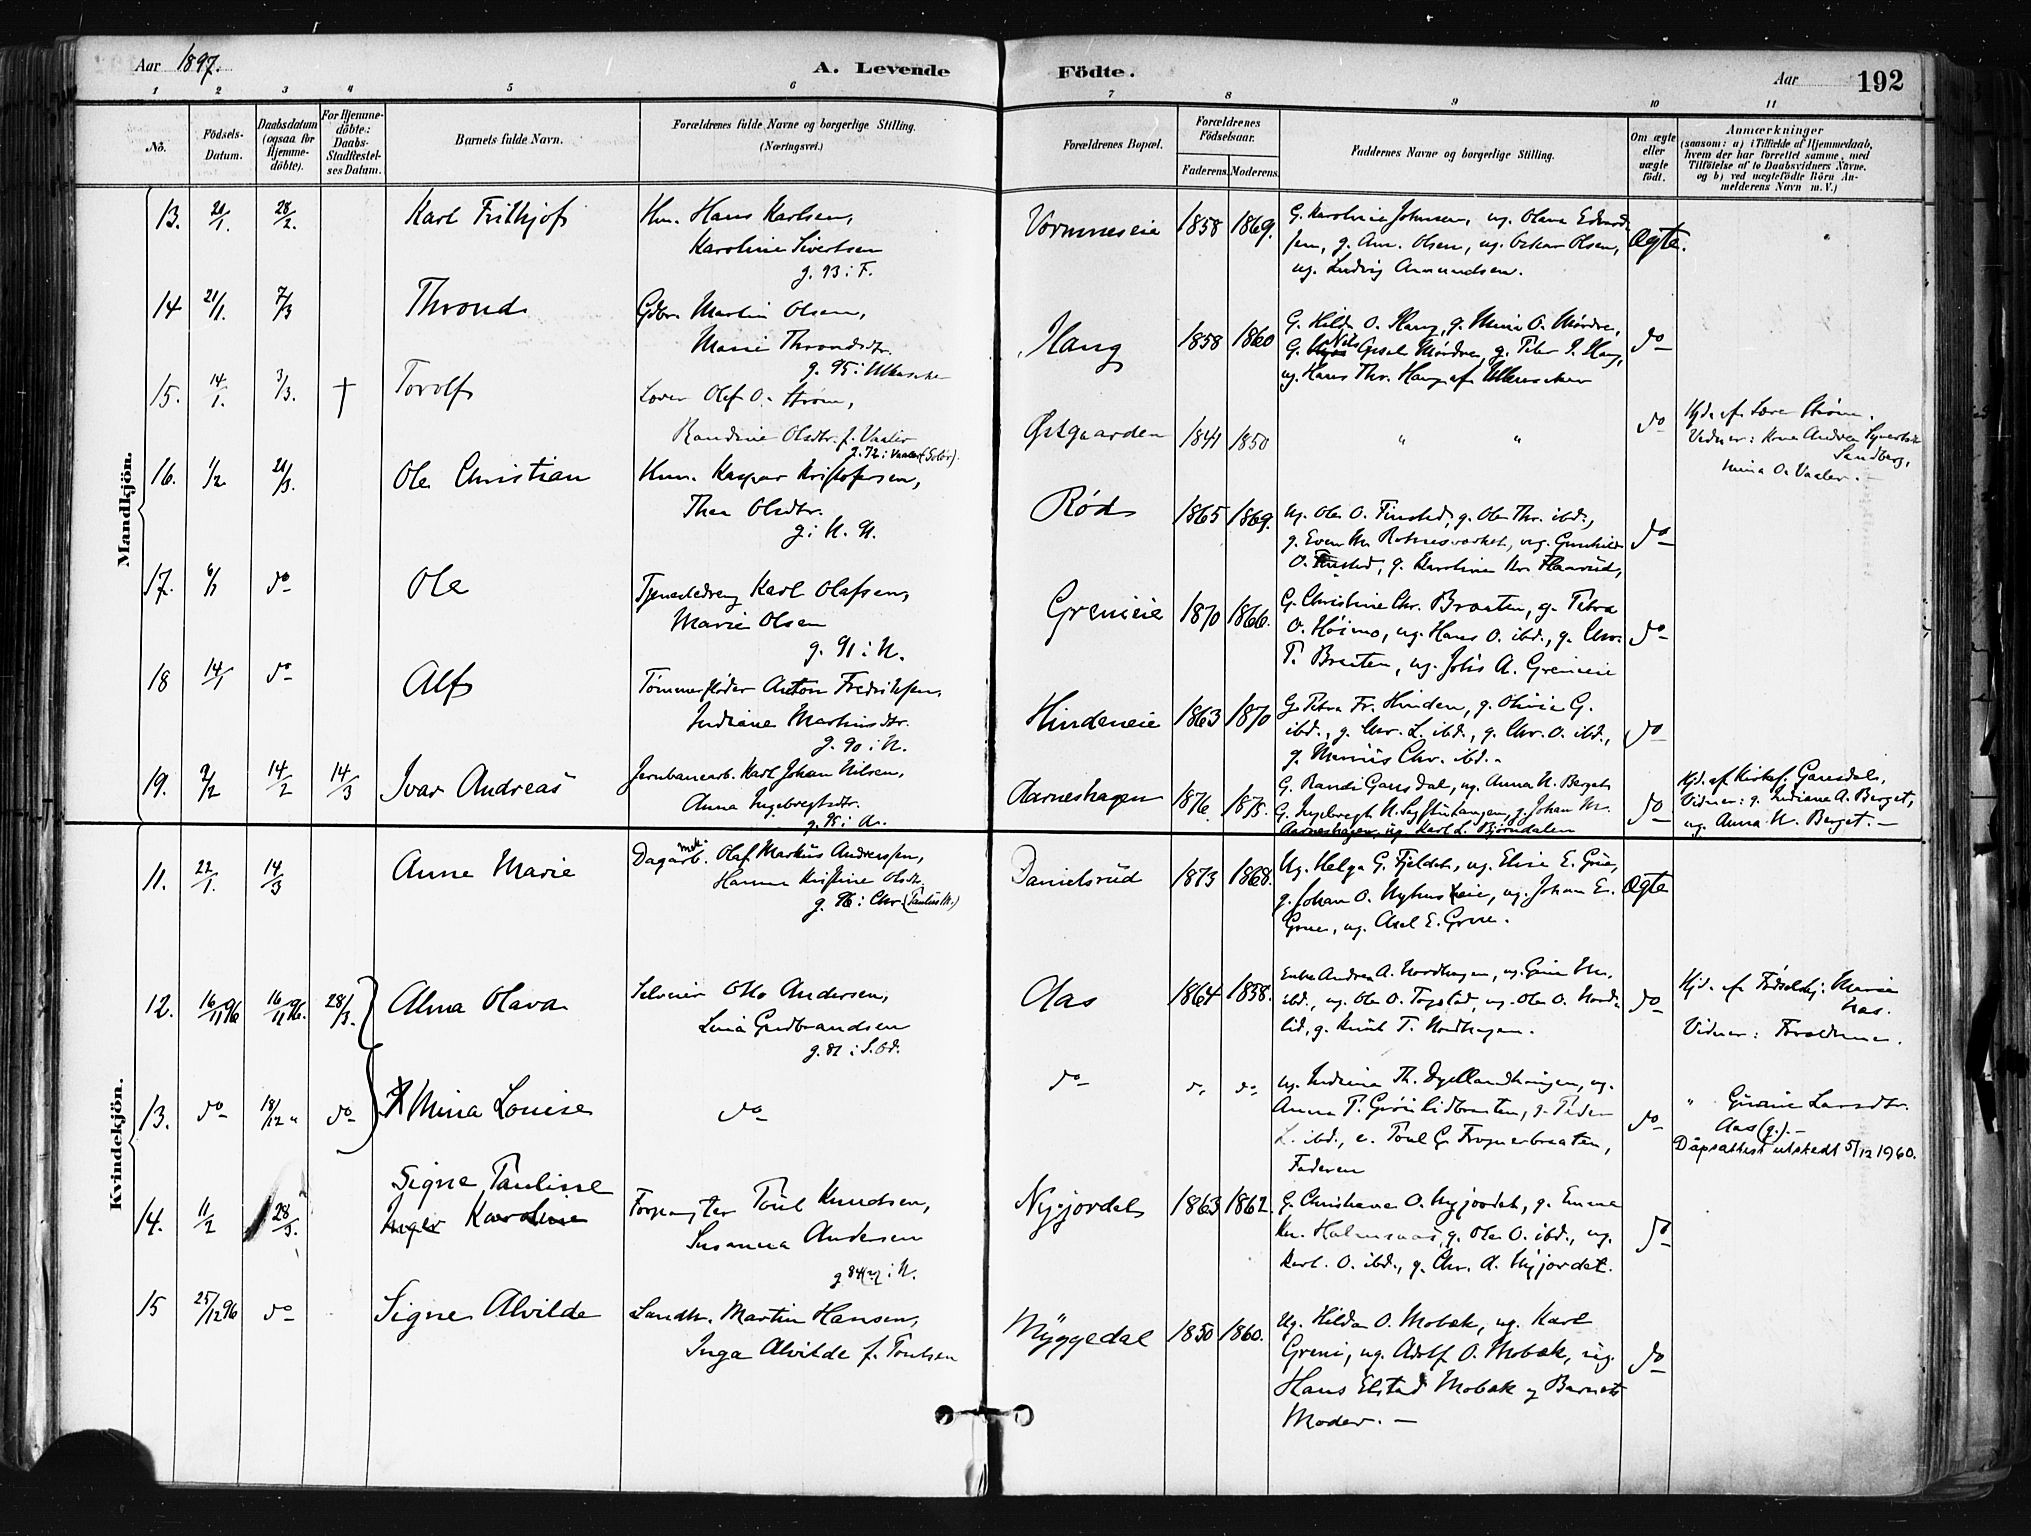 Aar 1897.
A. Levende
Födte.
Aar
192
1 2 3 4 5 6 7 8 9 10 11
No.
Födsels-
Datum.
Daabsdatum
(ogsaa for
Hjemme-
döbte).
For Hjemme-
döbte:
Daabs-
Stadfæstel-
ses Datum.
Barnets fulde Navn.
Forældrenes fulde Navne og borgerlige Stilling.
(Næringsvei.)
Forældrenes Bopæl.
Forældrenes
Födselsaar.
Faderens. Moderens.
Faddernes Navne og borgerlige Stilling.
Om ægte
eller
uægte
födt.
Anmærkninger
(saasom: a) i Tilfælde af Hjemmedaab,
hvem der har forrettet samme, med
Tilföielse af to Daabsvidners Navne.
og b) ved uægtefödte Börn An-
melderens Navn m. V.)
Mandkjön.
13. 20/1. 28/2. Karl Frithjof Hm. Hans Karlsen,
Karoline Sivertsen
g. 93 i F.
Vormneseie 1858 1869.
G. Karoline Johnsen, ug. Olava Edvard-
sen, g. Am. Olsen, ug. Oskar Olsen,
ug. Ludvig Amundsen.
Ægte.
14 21/1. 7/3 Thrond Gdbr. Martin Olsen,
Marie Throndsdtr.
g. 95 i Ullensaker
Haug 1858 1860
G. Hilda O. Haug, g. Mina O. Mørdre,
G. Nils Axsel Mørdre, g. Peter P. Haug,
ug. Hans Thr. Haug af Ullensaker
do
15. 14/1. 3/3. † Torolf Lærer Olef O. Strøm,
Randine Olsdtr. f. Vaaler
g. 72 i Vaaler (Solør).
Østgaarden 1841 1850 " "
do
Hjd. af Lærer Strøm.
Vidner: Kone Andrea Syversen
Sandberg,
Mina O. Vaaler. –
16. 1/2 21/3. Ole Christian Hmr. Kaspar Kristofersen,
Thea Olsdtr.
g. i N. N.
Röd 1865 1869.
ug. Ole O. Finstad, g. Ole Thr. ibd.,
g. Even M. Rotnesværket, ug. Gunhild
O. Finstad, g. Karoline Kr. Haarud,
do
17. 6/1 do Ole Tjenestedreng Karl Olafsen,
Marie Olsen
g. 91 i N.
Grenieie 1870 1866.
G. Christine Chr. Braaten, g. Petra
O. Høimo, ug. Hans O. ibd., g. Chr.
T. Braaten, ug. Johs A. Grenieie
do
18 14/1 do Alf Tømmerfløder Anton Fredriksen,
Indiane Martinsdtr.
g. 90 i N.
Hindeneie 1863 1870
G. Petra Fr. Hinden, g. Olivia G.
ibd., g. Chr. L. ibd., g. Chr. O. ibd.,
g. Marius Chr. ibd. –
do
19. 2/2 14/2 14/3 Ivar Andreas Jernbanearb. Karl Johan Nilsen,
Anna Ingebregtsdtr.
g. 95 i A.
Aarneshagen 1876. 1875.
G. Randi Gansdal, ug. Anna N. Berget
Aarneshagen, ug. Karl L. Bjørndalen
do
Hjd. af Kirkes. Gansdal,
Vidner: g. Indiane A. Berget,
ug. Anna N. Berget. –
Kvindekjön.
11. 22/1. 14/3 Anne Marie Dagarb. Olaf Markus Andreassen,
Hanna Kristine Olsdtr.
g. 96 i Chr. (Paulus M.)
Danielsrud 1873 1868.
Ug. Helga G. Fjeldet, ug. Elise E. Grue,
g. Johan O. Nyhuseie, ug. Johan E.
Grue, ug. Axel E. Grue.
Ægte
12. 16/11 96 16/11 96. 28/3. Alma Olava Selveier Otto Andersen,
Lina Gudbrandsen
g. 81 i S. Od.
Aas 1864 1858.
Enke Andrea A. Nordhagen, ug. Gina M.
ibd., ug. Ole O. Togstad, ug. Ole O. Nord-
lid, g. Knut T. Nordhagen.
do
Hjd. af Fødselshj. Marie
Aas.
Vidner: Forældrene.
13. do 18/12 " do Mina Louise do
do d. do
Anna P. Grönlidbraaten, g. Peder
L. ibd., e. Poul G. Frognerbraaten,
Faderen
do
" Gurine Larsdtr.
Aas (g.). –
Dåpsattest utstedt 5/12 1960.
14. 11/2 28/3. Signe Pauline
Inger Karoline Forpagter Poul Knudsen,
Susanna Andersen
g. 84 i N.
Nyjordet 1863 1862.
G. Christiane O. Nyjordet, g. Emma
Kr. Holmsaas, g. Ole O. ibd., ug.
Karl. O. ibd., g. Chr. A. Nyjordet.
do
15 25/12 96 do Signe Alvilde Landh. Martin Hansen,
Inga Alvilde f. Poulsen
Myggedal 1850 1860.
ug. Hilda O. Mobæk, ug. Karl
Greni, ug. Adolf O. Mobæk, ug.
Hans Elstad Mobæk og Barnets
Moder. –
do